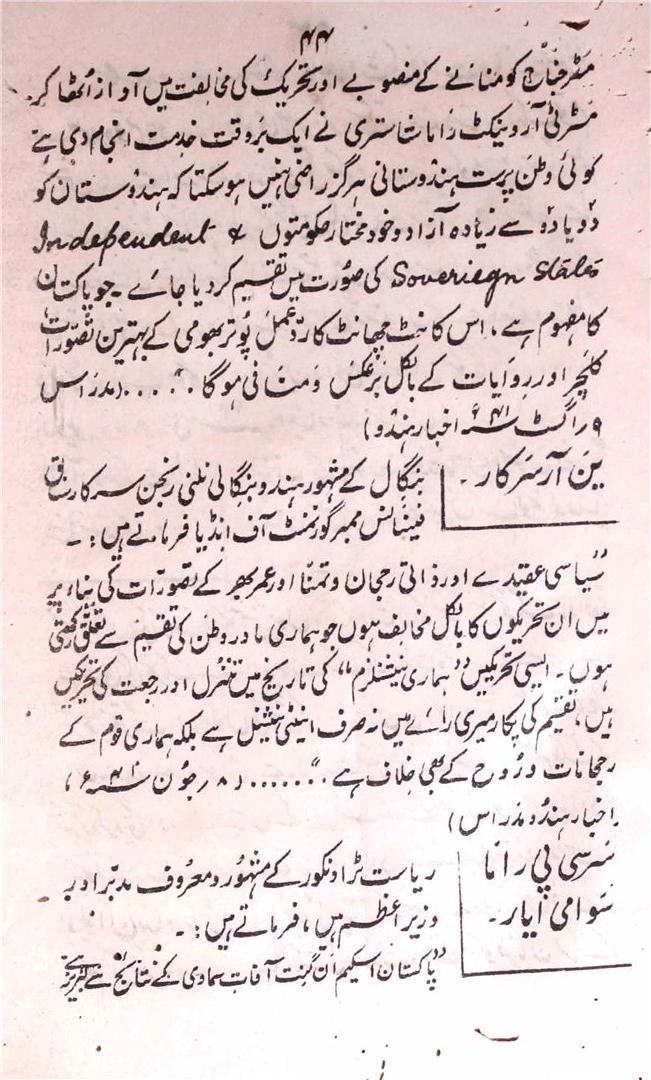 ۴۴
مسٹر جناح کو منانے کے منصوبے اور تحریک کی مخالفت میں آواز اُٹھا کر
مسٹر ٹی آر وینکٹ راما شاستری نے ایک بروقت خدمت انجام دی ہے
کوئی وطن پرست ہندوستانی ہرگز راضی نہیں ہو سکتا کہ ہندوستان کو
دو یا دو سے زیادہ آزاد و خود مختار حکومتوں Independent &
Soveriegn States کی صورت میں تقسیم کر دیا جائے ۔ جو پاکستان
کا مفہوم ہے ، اس کانٹ چھانٹ کا ردّ عمل پوتر بھومی کے بہترین تصّورات
کلچر اور روایات کے بالکل برعکس و منافی ہو گا ..“.... (مدراس
۹ اگست ۴۱ء اخبار ہندو)
ین آر سرکار ۔
بنگال کے مشہور ہندو بنگالی نلنی رنجن سرکار سابق
فینانس ممبر گورنمنٹ آف انڈیا فرماتے ہیں :۔
”سیاسی عقیدے اور ذاتی رجحان و تمنا اور عمر بھر کے تصورات کی بناء پر
میں ان تحریکوں کا بالکل مخالف ہوں جو ہماری مادر وطن کی تقسیم سے تعلق رکھتی
ہوں ۔ ایسی تحریکیں ”ہماری نیشنلزم“ کی تاریخ میں تنزل اور رجعت کی تحریکیں
ہیں ، تقسیم کی پکار میری رائے میں نہ صرف اینٹی نیشنل ہے بلکہ ہماری قوم کے
رجحانات و رُوح کے بھی خلاف ہے ..“...... (۸ جون ۴۱ء ،
اخبار ہندو مدراس)
سر سی پی راما
سوامی ایار ۔
ریاست ٹراونکور کے مشہور و معروف مدبّر اور
وزیر اعظم ہیں ، فرماتے ہیں :۔
”پاکستان اسکیم اَن گنت آفات سماوی کے نتائج سے لبریز ہے